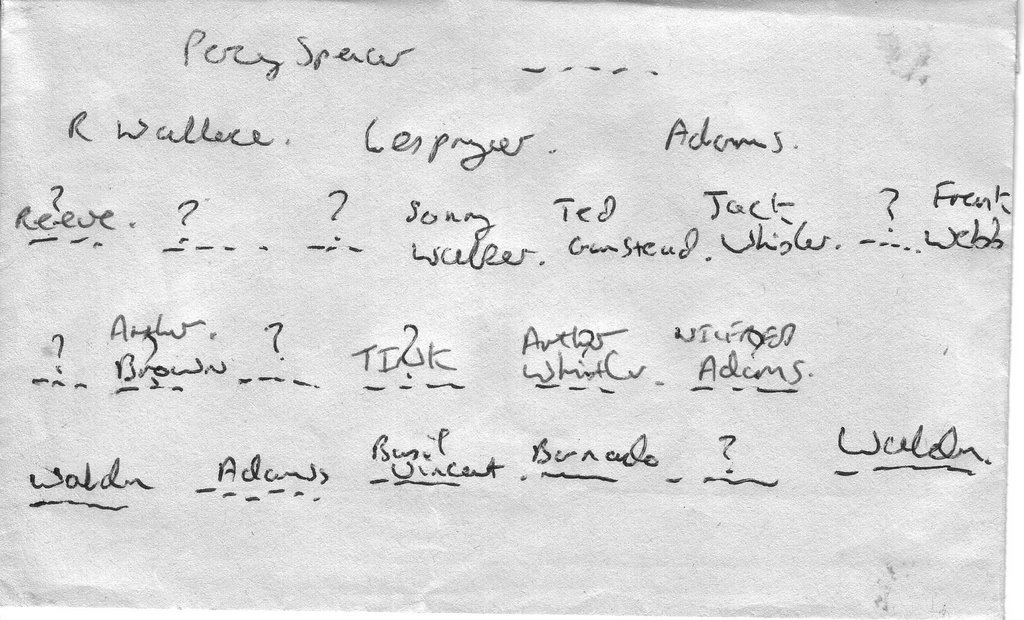 Percy Spencer
R Wallace. Adams.
? Reeve. ? ? Sonny Walker. Ted Jack Whisler. ? Frank Webb
? Arthur. Brown ? TINK ? Arthur Whistler. WILFRED Adams.
Waldn Adams Basil Vincent. Barnado ? Waldn.